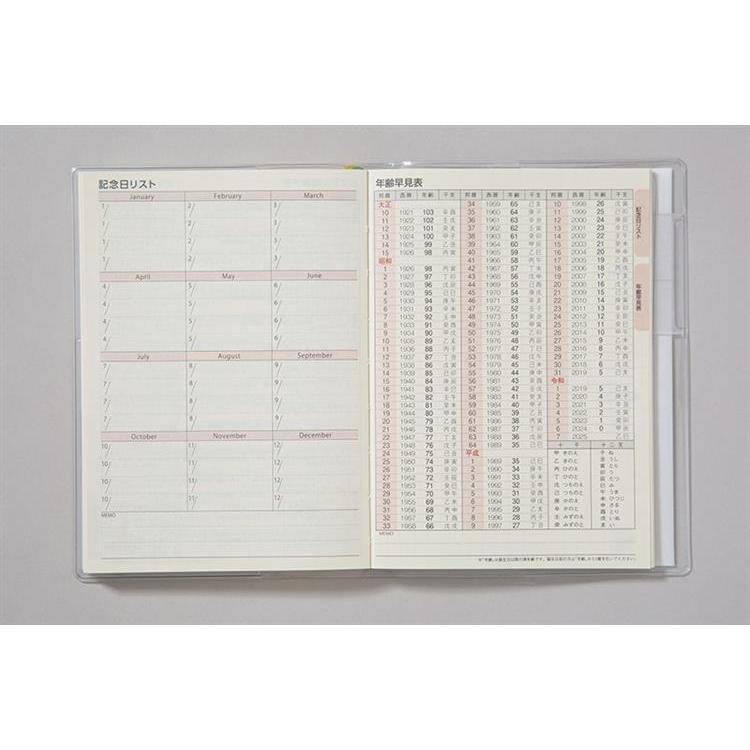 記念日リスト
January February March
1/ 2/ 3/
1/ 2/ 3/
1/ 2/ 3/
1/ 2/ 3/
April May June
4/ 5/ 6/
4/ 5/ 6/
4/ 5/ 6/
4/ 5/ 6/
July August September
7/ 8/ 9/
7/ 8/ 9/
7/ 8/ 9/
7/ 8/ 9/
October November December
10/ 11/ 12/
10/ 11/ 12/
10/ 11/ 12/
10/ 11/ 12/
MEMO
年齢早見表
邦暦 西暦 年齢 干支
大正
10 1921 103 辛酉
11 1922 102 壬戌
12 1923 101 癸亥
13 1924 100 甲子
14 1925 99 乙丑
15 1926 98 丙寅
昭和
1 1926 98 丙寅
2 1927 97 丁卯
3 1928 96 戊辰
4 1929 95 己巳
5 1930 94 庚午
6 1931 93 辛未
7 1932 92 壬申
8 1933 91 癸酉
9 1934 90 甲戌
10 1935 89 乙亥
11 1936 88 丙子
12 1937 87 丁丑
13 1938 86 戊寅
14 1939 85 己卯
15 1940 84 庚辰
16 1941 83 辛巳
17 1942 82 壬午
18 1943 81 癸未
19 1944 80 甲申
20 1945 79 乙酉
21 1946 78 丙戌
22 1947 77 丁亥
23 1948 76 戊子
24 1949 75 己丑
25 1950 74 庚寅
26 1951 73 辛卯
27 1952 72 壬辰
28 1953 71 癸巳
29 1954 70 甲午
30 1955 69 乙未
31 1956 68 丙申
32 1957 67 丁酉
33 1958 66 戊戌
邦暦 西暦 年齢 干支
34 1959 65 己亥
35 1960 64 庚子
36 1961 63 辛丑
37 1962 62 壬寅
38 1963 61 癸卯
39 1964 60 甲辰
40 1965 59 乙巳
41 1966 58 丙午
42 1967 57 丁未
43 1968 56 戊申
44 1969 55 己酉
45 1970 54 庚戌
46 1971 53 辛亥
47 1972 52 壬子
48 1973 51 癸丑
49 1974 50 甲寅
50 1975 49 乙卯
51 1976 48 丙辰
52 1977 47 丁巳
53 1978 46 戊午
54 1979 45 己未
55 1980 44 庚申
56 1981 43 辛酉
57 1982 42 壬戌
58 1983 41 癸亥
59 1984 40 甲子
60 1985 39 乙丑
61 1986 38 丙寅
62 1987 37 丁卯
63 1988 36 戊辰
64 1989 35 己巳
平成
1 1989 35 己巳
2 1990 34 庚午
3 1991 33 辛未
4 1992 32 壬申
5 1993 31 癸酉
6 1994 30 甲戌
7 1995 29 乙亥
8 1996 28 丙子
9 1997 27 丁丑
邦暦 西暦 年齢 干支
10 1998 26 戊寅
11 1999 25 己卯
12 2000 24 庚辰
13 2001 23 辛巳
14 2002 22 壬午
15 2003 21 癸未
16 2004 20 甲申
17 2005 19 乙酉
18 2006 18 丙戌
19 2007 17 丁亥
20 2008 16 戊子
21 2009 15 己丑
22 2010 14 庚寅
23 2011 13 辛卯
24 2012 12 壬辰
25 2013 11 癸巳
26 2014 10 甲午
27 2015 9 乙未
28 2016 8 丙申
29 2017 7 丁酉
30 2018 6 戊戌
31 2019 5 己亥
令和
1 2019 5 己亥
2 2020 4 庚子
3 2021 3 辛丑
4 2022 2 壬寅
5 2023 1 癸卯
6 2024 0 甲辰
7 2025 乙巳
十干 十二支
甲 きのえ
乙 きのと
丙 ひのえ
丁 ひのと
戊 つちのえ
己 つちのと
庚 かのえ
辛 かのと
壬 みずのえ
癸 みずのと
子 ね
丑 うし
寅 とら
卯 う
辰 たつ
巳 み
午 うま
未 ひつじ
申 さる
酉 とり
戌 いぬ
亥 い
MEMO
※"年齢"は誕生日以降の満年齢です。誕生日前の方は"年齢"から1歳を引いてください。
記念日リスト
年齢早見表